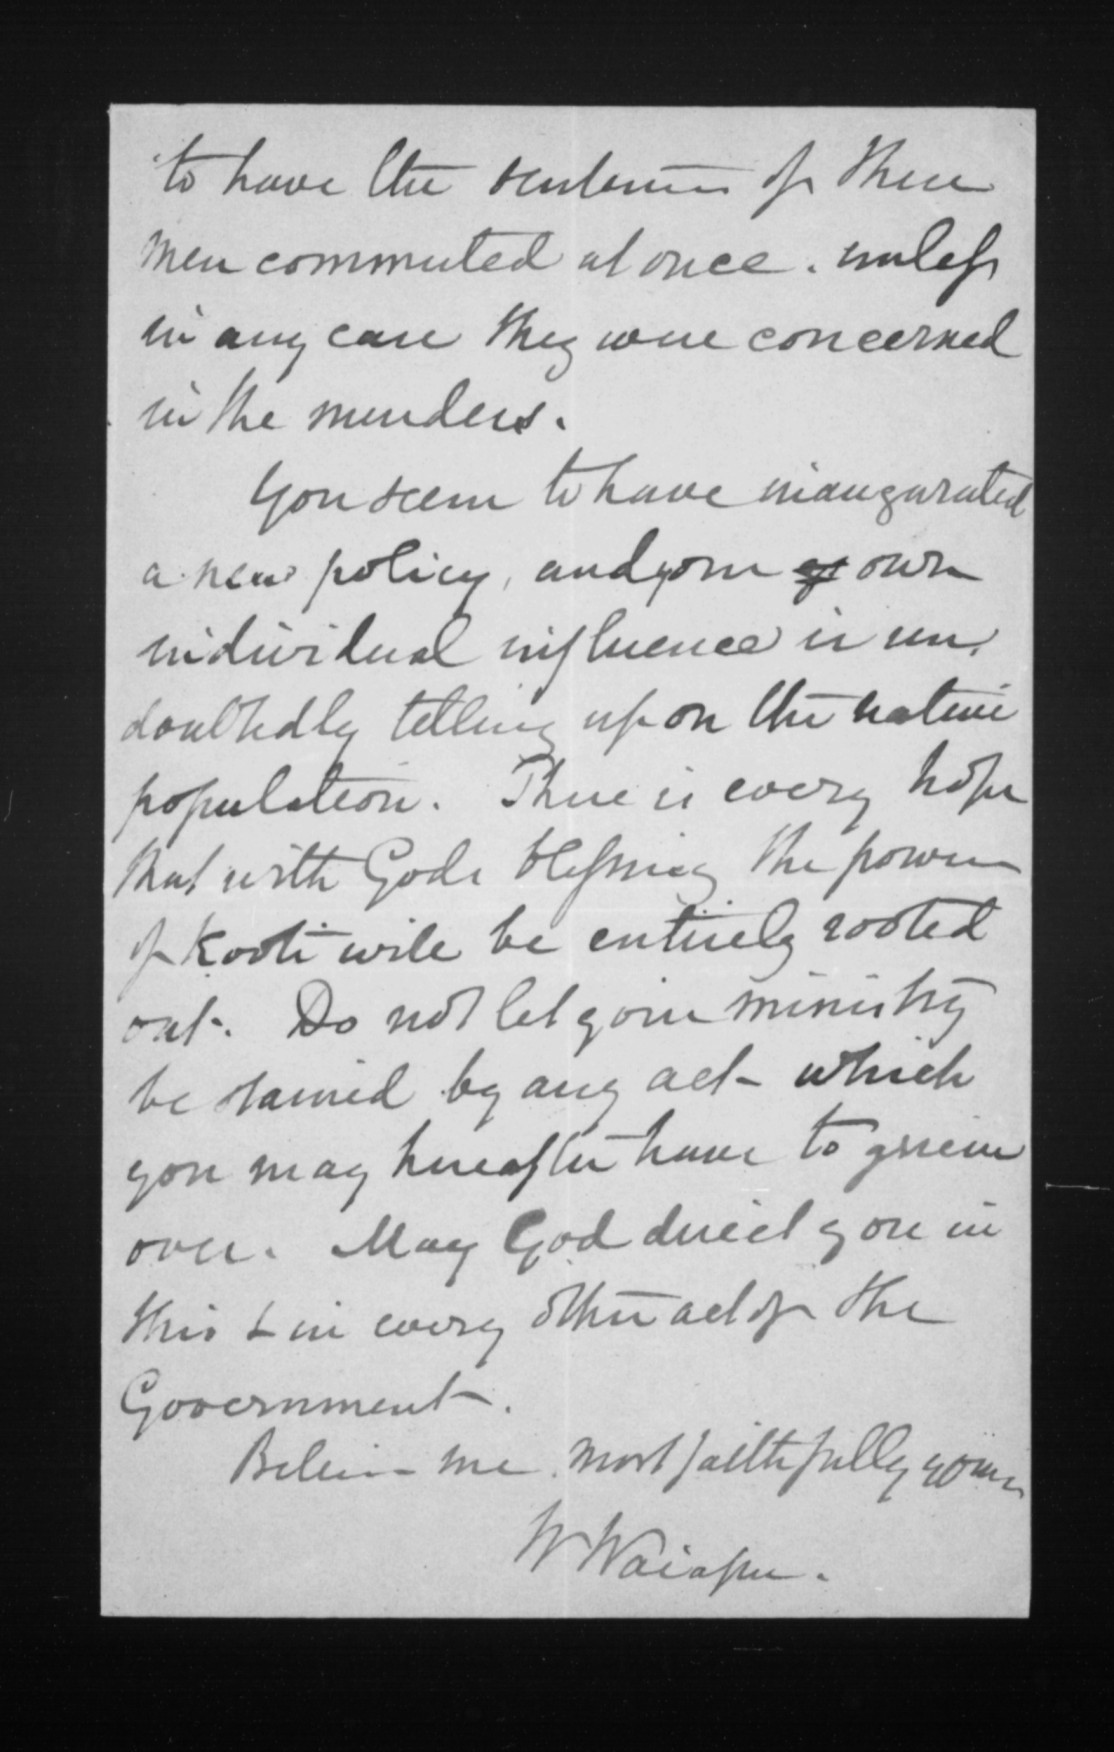 to have the sentences of these
men commuted at once. unless
in any case they were concerned
in the murders.
You seem to have inaugurated
a new policy, and your own
individual influence is un-
doubtedly telling upon the native
population. There is every hope
that with Gods blessing the power
of Kooti will be entirely rooted
out. Do not let your ministry
be stained by any act which
you may hereafter have to grieve
over. May God direct you in
this & in every other act of the
Government.
Believe me most faithfully yours
W Waiapu.